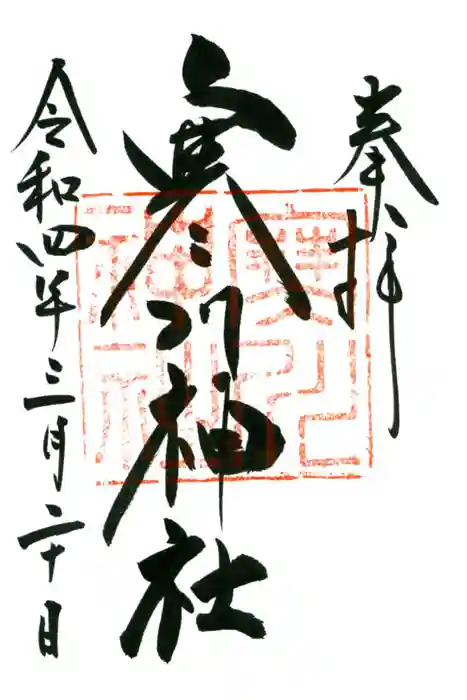 奉拝
寒川神社
令和四年三月二十日